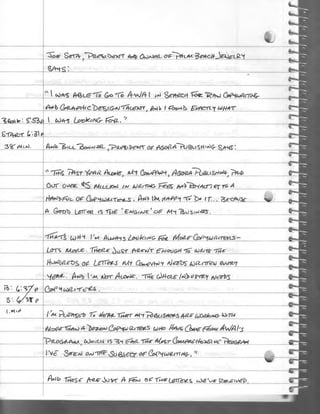 JOE SETA, PRESIDENT AND OWNER OF PALM BEACH JEWELRY
SAYS:
"I WAS ABLE TO GO TO AWAI IN SEARCH FOR RAW COPYWRITING
AND GRAPHIC DESIGN TALENT, AND I FOUND EXACTLY WHAT
I WAS LOOKING FOR."
START: 6:31P
38 MIN.
AND BILL BONNER, PRESIDENT OF AGORA PUBLISHING SAYS:
"THIS PAST YEAR ALONE, MY COMPANY, AGORA PUBLISHING, PAID
OUT OVER $5 MILLION IN WRITING FEES AND ROYALTIES TO A
HANDFUL OF COPYWRITERS. AND I'M HAPPY TO DO IT... BECAUSE
A GOOD LETTER IS THE 'ENGINE' OF MY BUSINESS.
THAT'S WHY I'M ALWAYS LOOKING FOR MORE COPYWRITERS –
LOTS MORE. THERE JUST AREN'T ENOUGH TO WRITE THE
HUNDREDS OF LETTERS MY COMPANY NEEDS WRITTEN EVERY
YEAR. AND I'M NOT ALONE. THE WHOLE INDUSTRY NEEDS
COPYWRITERS.
I'M PLEASED TO HEAR THAT MY PUBLISHERS ARE WORKING WITH
MORE THAN A DOZEN COPYWRITERS WHO HAVE COME FROM AWAI'S
PROGRAM, WHICH IS BY FAR THE MOST COMPREHENSIVE PROGRAM
I'VE SEEN ON THE SUBJECT OF COPYWRITING."
AND THESE ARE JUST A FEW OF THE LETTERS WE'VE RECEIVED.